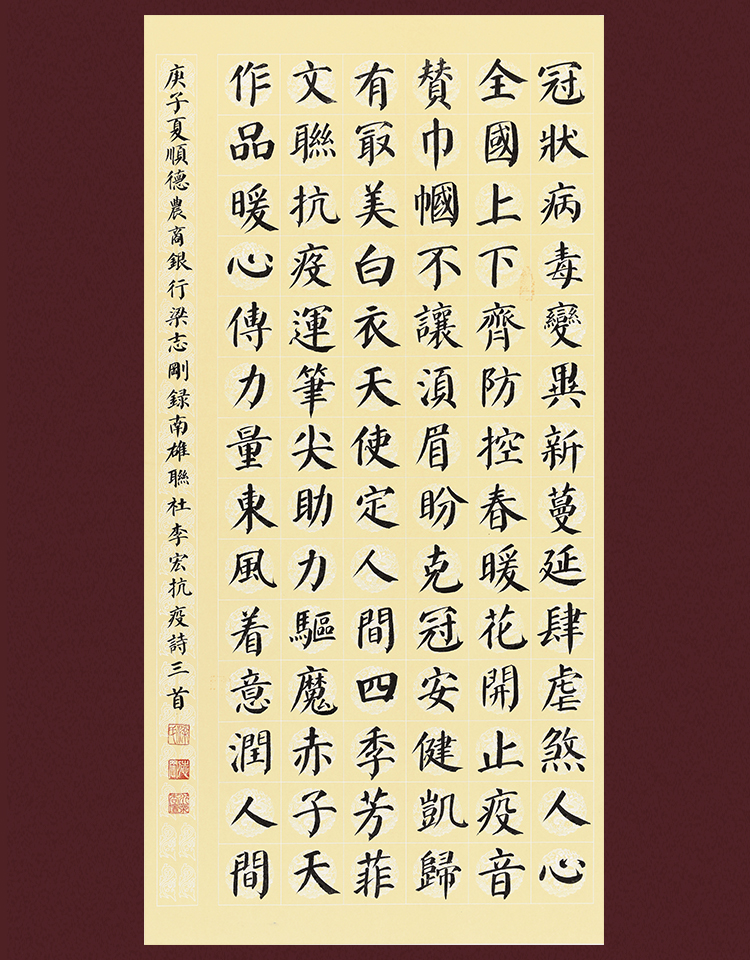 冠狀病毒變異新蔓延肆虐煞人心
全國上下齊防控春暖花開止疫音
贊巾幗不讓湏眉盼克冠安健凱歸
有冣美白衣天使定人間四季芳菲
文聯抗疫運筆尖助力驅魔赤子天
作品暖心傳力量東風着意潤人間
庚子夏順德農商銀行梁志剛録南雄聯社李宏抗疫詩三首